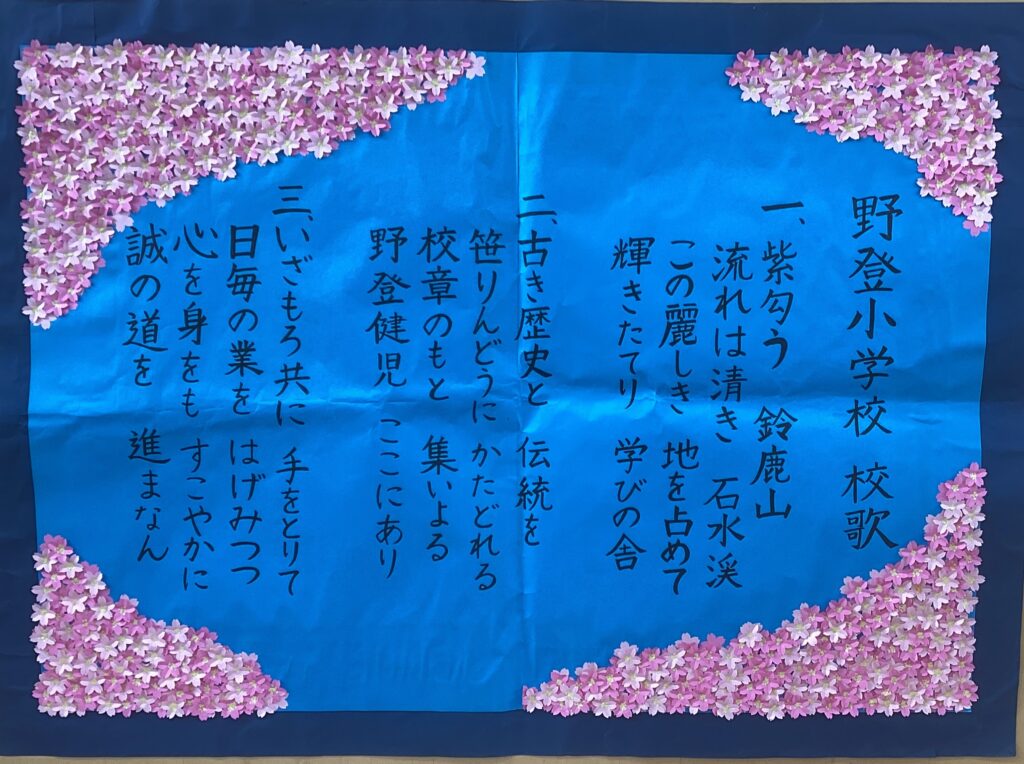 野登小学校 校歌
一、紫匂う 鈴鹿山
流れは清き 石水渓
この麗しき 地を占めて
輝きたてり 学びの舎
二、古き歴史と 伝統を
笹りんどうに かたどれる
校章のもと 集いよる
野登健児 ここにあり
三、いざもろ共に 手をとりて
日毎の業を はげみつつ
心を身をも すこやかに
誠の道を 進まなん